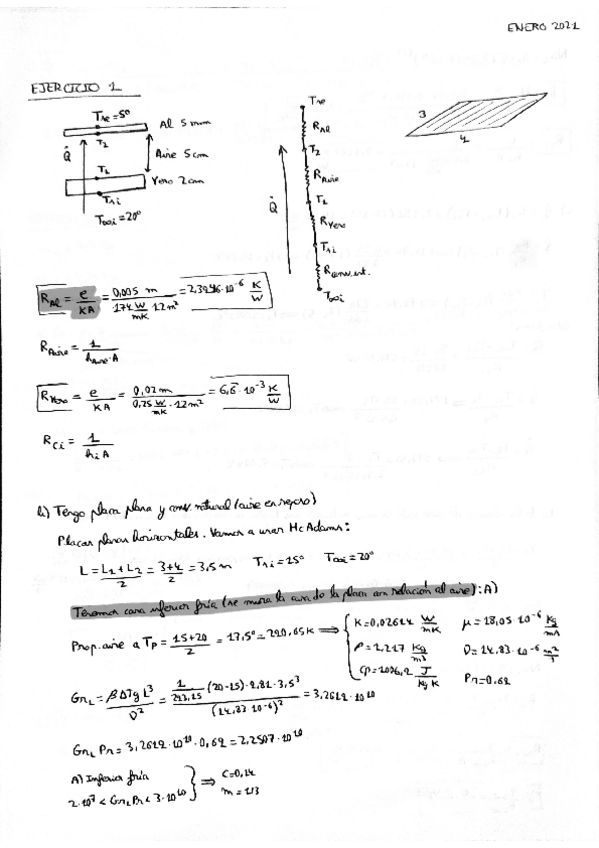 ENERO 2021
EJERCICIO 1
T1e=5º
Al 5mm
T2
Q̇
Aire 5cm
T1
Yeso 2cm
T1i
T∞i=20º
T1e
RAl
T2
RAire
T1
Q̇
RYeso
T1i
Rconvint.
T∞i
3
4
RAl = e/KA = 0,005 m / (174 W/mK · 12m²) = 2,3946·10⁻⁶ K/W
RAire = 1/(hAire·A)
RYeso = e/KA = 0,02m / (0,25 W/mK · 12m²) = 6,6̄·10⁻³ K/W
RCi = 1/(hi A)
hi) Tengo placa plana y conv. natural (aire en reposo)
Placas planas horizontales. Vamos a usar McAdams:
L = (L1+L2)/2 = (3+4)/2 = 3,5m T1i=15º T∞i=20º
Tenemos cara inferior fría (se mira la cara de la placa con relación al aire): A)
Prop. aire a Tp = (15+20)/2 = 17,5º = 290,65K ⟹
K=0,02614 W/mK μ=18,05·10⁻⁶ Kg/ms
ρ=1,217 Kg/m³ ν=14,83·10⁻⁶ m²/s
Cp=1006,2 J/KgK Pr=0,69
GrL = βΔTgL³/ν² = (1/293,15 (20-15)·9,81·3,5³)/(14,83·10⁻⁶)² = 3,2612·10¹⁰
GrL Pr = 3,2612·10¹⁰·0,69 = 2,2507·10¹⁰
A) Inferior fría
2·10⁷ < GrL Pr < 3·10¹⁰
⟹ C=0,14
m=1/3